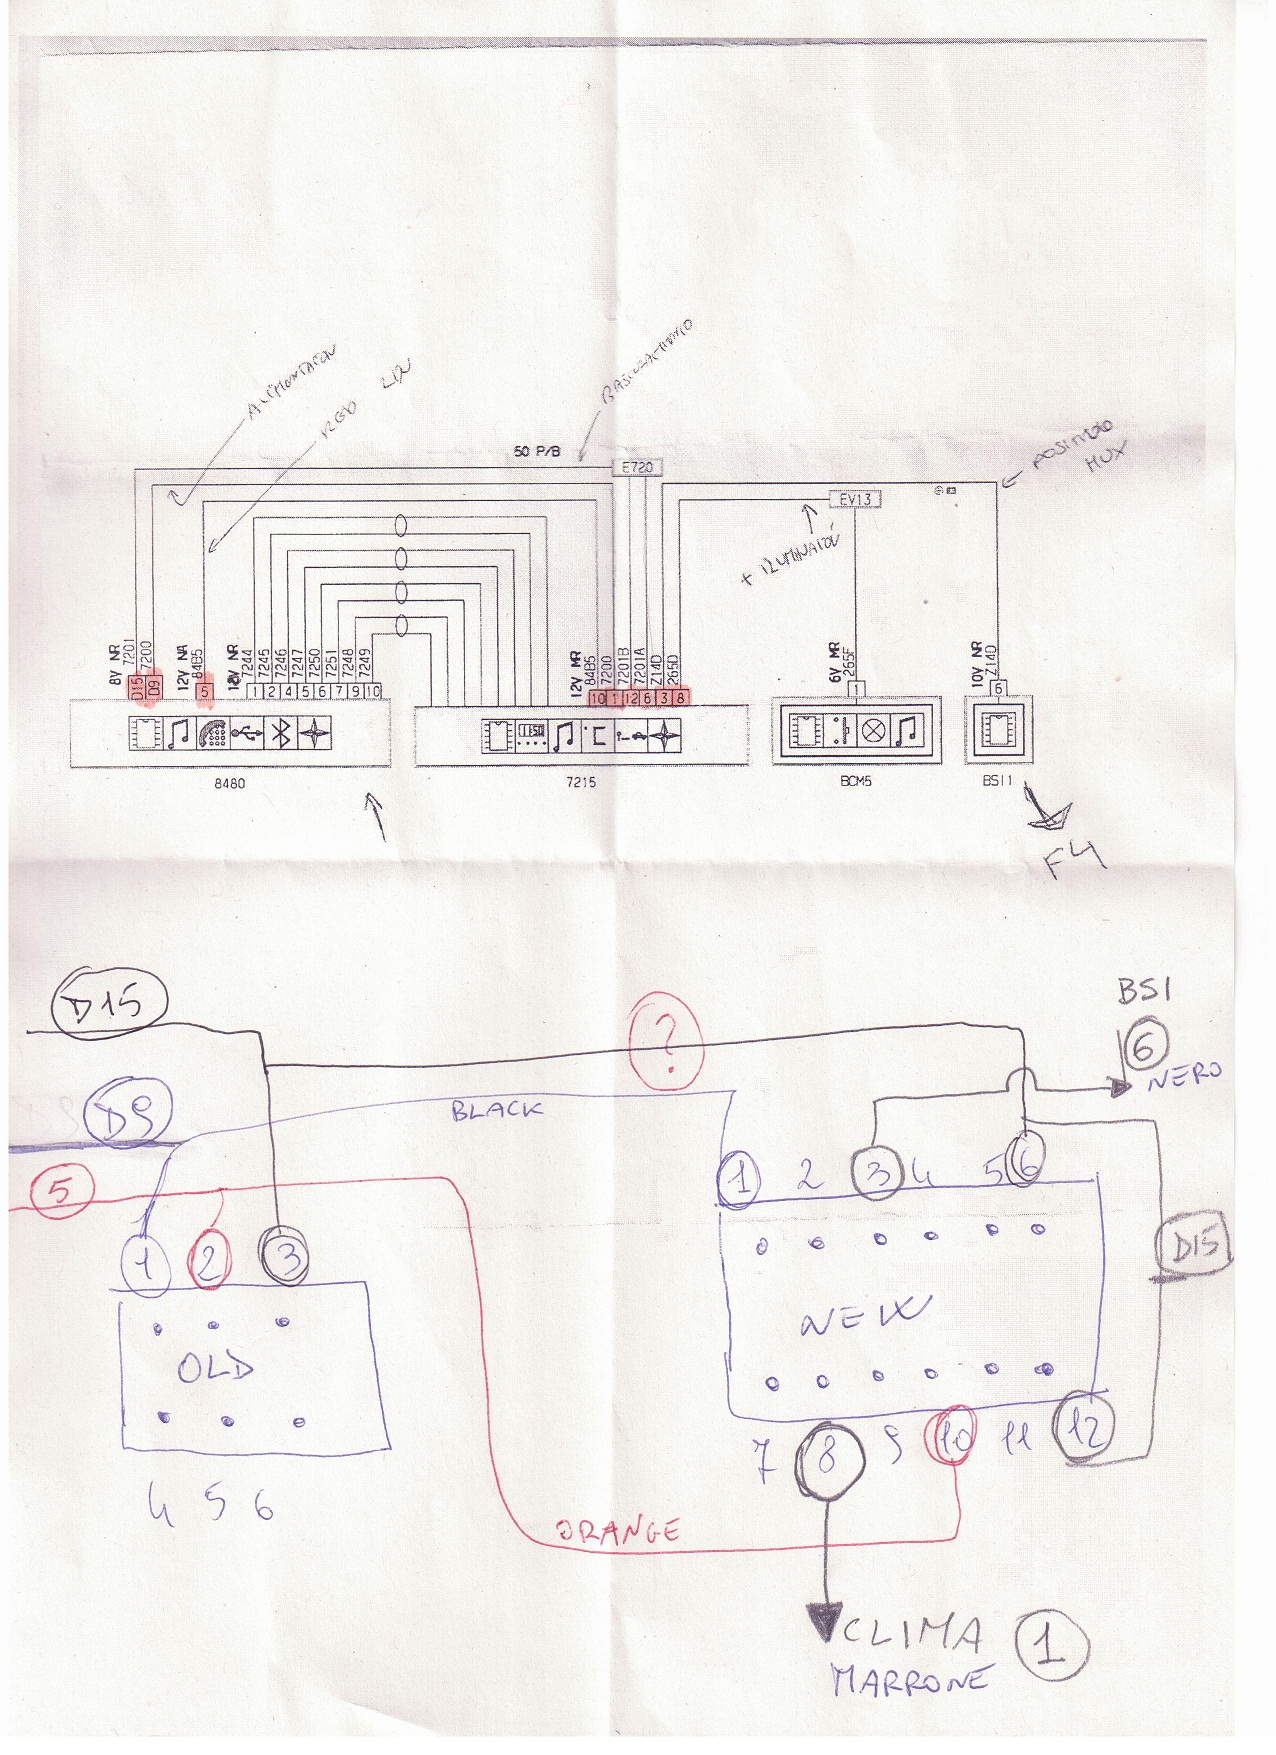 RED LIN
+ ILUMINACION
POSITIVO
MUX
50 P/B
E720
EV13
8V NR
7201
7200
12V NA
84B5
7244
7245
7246
7247
7250
7251
7248
7249
12V MR
84B5
7200
7201B
7201A
Z14D
265D
6V MR
265F
10V NR
Z14D
D15 D9 5 1 2 4 5 6 7 9 10
10 1 12 6 3 8
1
6
8480
7215
BCM5
BSI1
F4
D15
?
BSI
6
NERO
D9
BLACK
5
1 2 3 4 5 6
1 2 3
D15
NEW
OLD
7 8 9 10 11 12
4 5 6
ORANGE
CLIMA 1
MARRONE